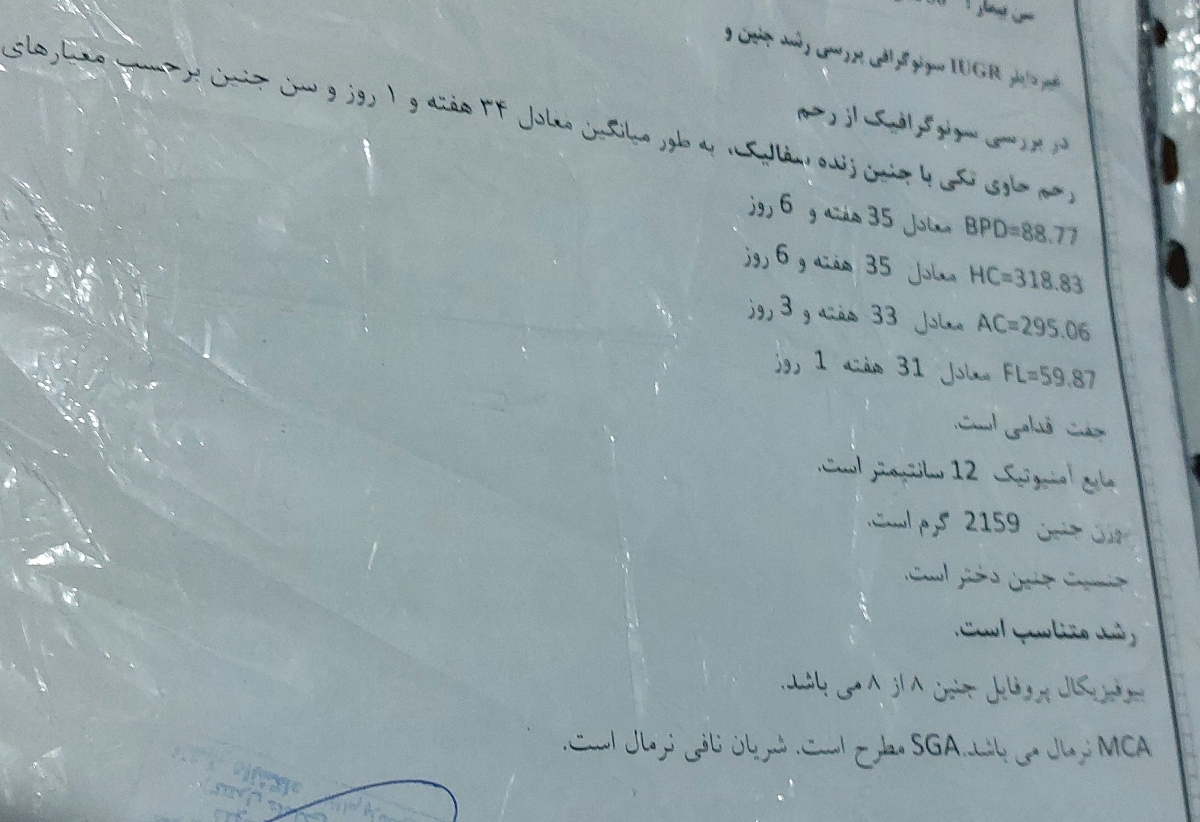 سن بیمار:
غیرداپلر IUGR سونوگرافی بررسی رشد جنین و
در بررسی سونوگرافیک از رحم
رحم حاوی تکی با جنین زنده سفالیک، به طور میانگین معادل ۳۴ هفته و ۱ روز و سن جنین برحسب معیارهای
BPD=88.77 معادل 35 هفته و 6 روز
HC=318.83 معادل 35 هفته و 6 روز
AC=295.06 معادل 33 هفته و 3 روز
FL=59.87 معادل 31 هفته 1 روز
جفت قدامی است.
مایع آمنیوتیک 12 سانتیمتر است.
وزن جنین 2159 گرم است.
جنسیت جنین دختر است.
رشد متناسب است.
بیوفیزیکال پروفایل جنین ۸ از ۸ می باشد.
MCA نرمال می باشد.SGA مطرح است. شریان نافی نرمال است.